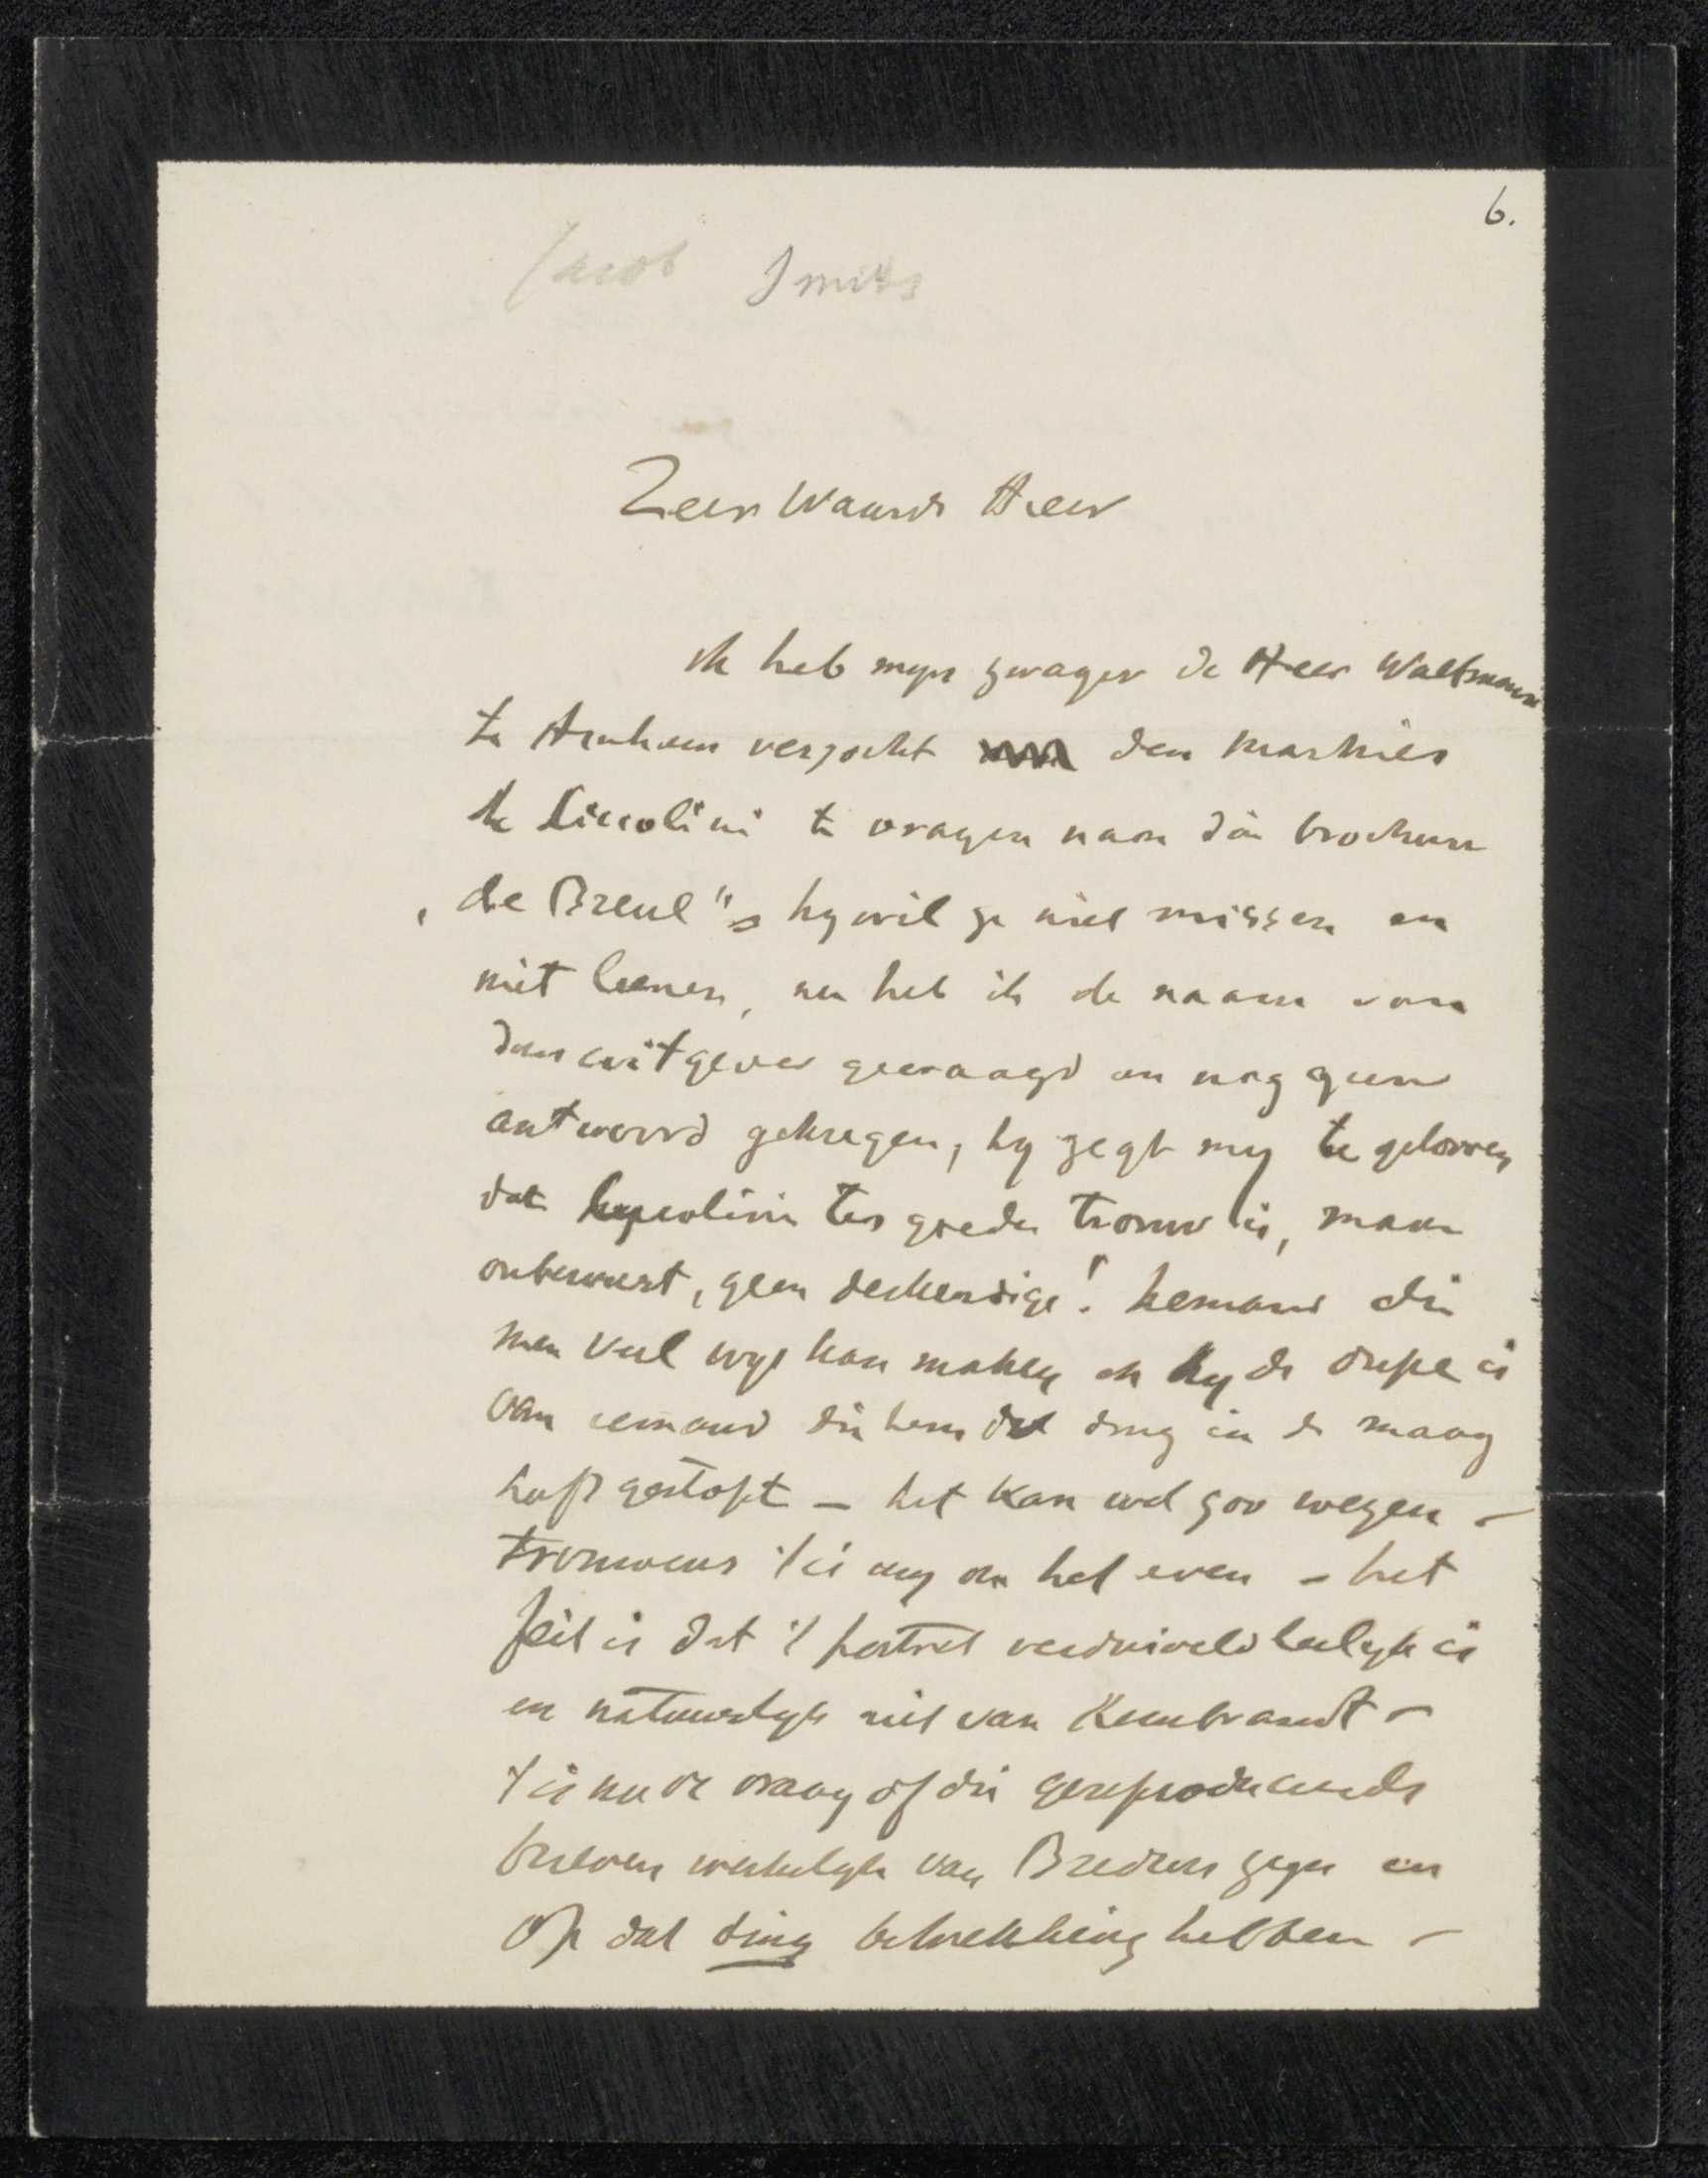 6.
Jacob Smits
Zeer Waarde Heer
ik heb myn zwager de Heer Waltmann
te Arnhem verzocht den markies
de Liccolini te vragen naar die brochure
"de Breul" hy wil ze niet missen en
niet leenen, nu heb ik de naam van
den uitgever gevraagd en nog geen
antwoord gekregen, hy zegt my te gelooven
dat ter goeder trouw is, maar
onbewust, geen deskundige! Iemand die
men veel wys kan maken en hy de dupe is
van iemand die hem dat ding in de maag
heeft gestopt – het kan wel zoo wezen –
trouwens 't is my om het even – het
feit is dat 't portret verduiveld leelyk is
en natuurlyk niet van Rembrandt –
't is nu de vraag of die gereproduceerde
brieven werkelyk van Bredius zyn en
op dat ding betrekking hebben –